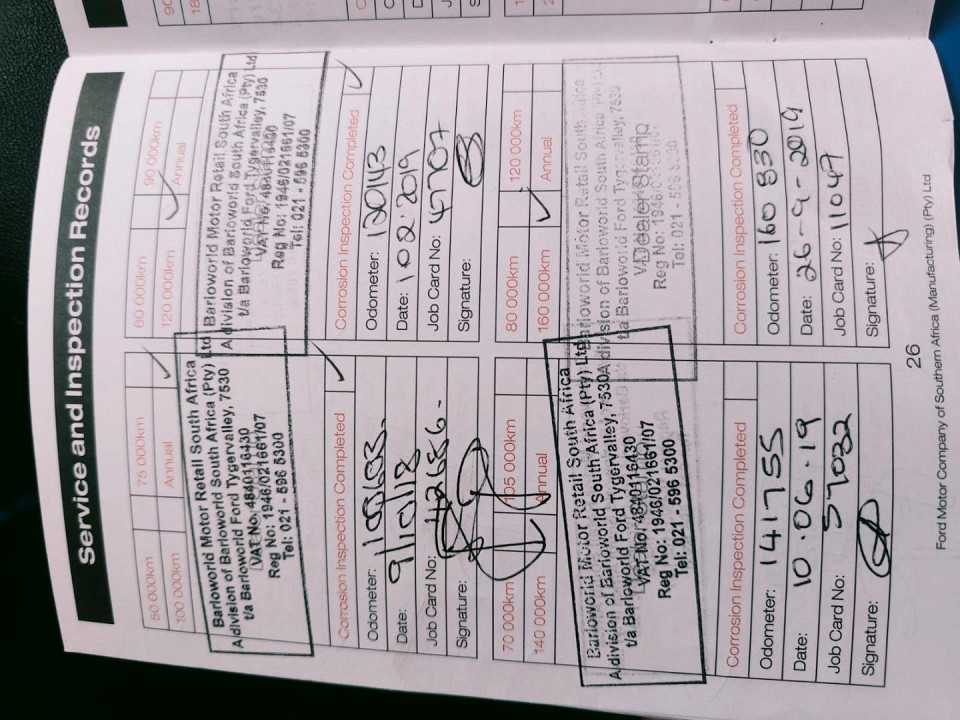 Service and Inspection Records
50 000km 75 000km
100 000km Annual
Barloworld Motor Retail South Africa
A division of Barloworld South Africa (Pty) Ltd
t/a Barloworld Ford Tygervalley, 7530
VAT No: 4840116430
Reg No: 1946/021661/07
Tel: 021 - 596 5300
Corrosion Inspection Completed
Odometer:
Date: 9/10/18
Job Card No: 42686 -
Signature:
60 000km 90 000km
120 000km Annual
Barloworld Motor Retail South Africa
A division of Barloworld South Africa (Pty) Ltd
t/a Barloworld Ford Tygervalley, 7530
VAT No: 4840116430
Reg No: 1946/021661/07
Tel: 021 - 596 5300
Corrosion Inspection Completed
Odometer: 120143
Date: 1 02 . 2019
Job Card No: 47707
Signature:
70 000km 105 000km
140 000km Annual
Barloworld Motor Retail South Africa
A division of Barloworld South Africa (Pty) Ltd
t/a Barloworld Ford Tygervalley, 7530
VAT No: 4840116430
Reg No: 1946/021661/07
Tel: 021 - 596 5300
Corrosion Inspection Completed
Odometer: 141755
Date: 10 . 06 . 19
Job Card No: 57032
Signature:
80 000km 120 000km
160 000km Annual
Barloworld Motor Retail South Africa
A division of Barloworld South Africa
t/a Barloworld Ford Tygervalley, 7530
Dealer Stamp
Reg No: 1946
Tel: 021 - 596 5300
Corrosion Inspection Completed
Odometer: 160 830
Date: 26 - 9 - 2019
Job Card No: 11047
Signature:
26
Ford Motor Company of Southern Africa (Manufacturing) (Pty) Ltd